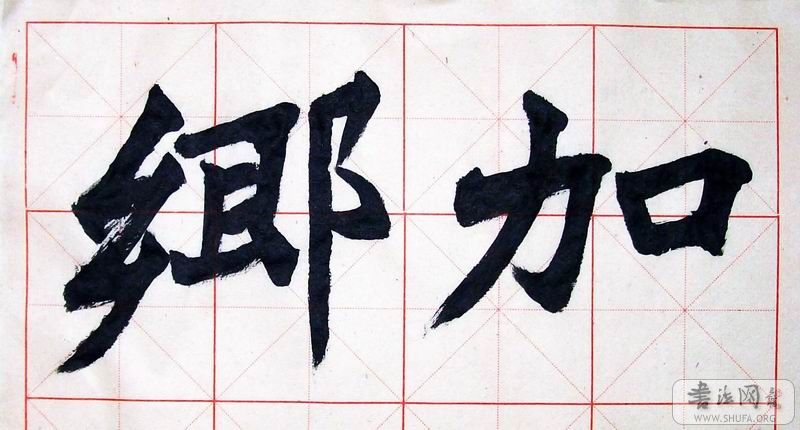 加
鄉
書法网
WWW.SHUFA.ORG